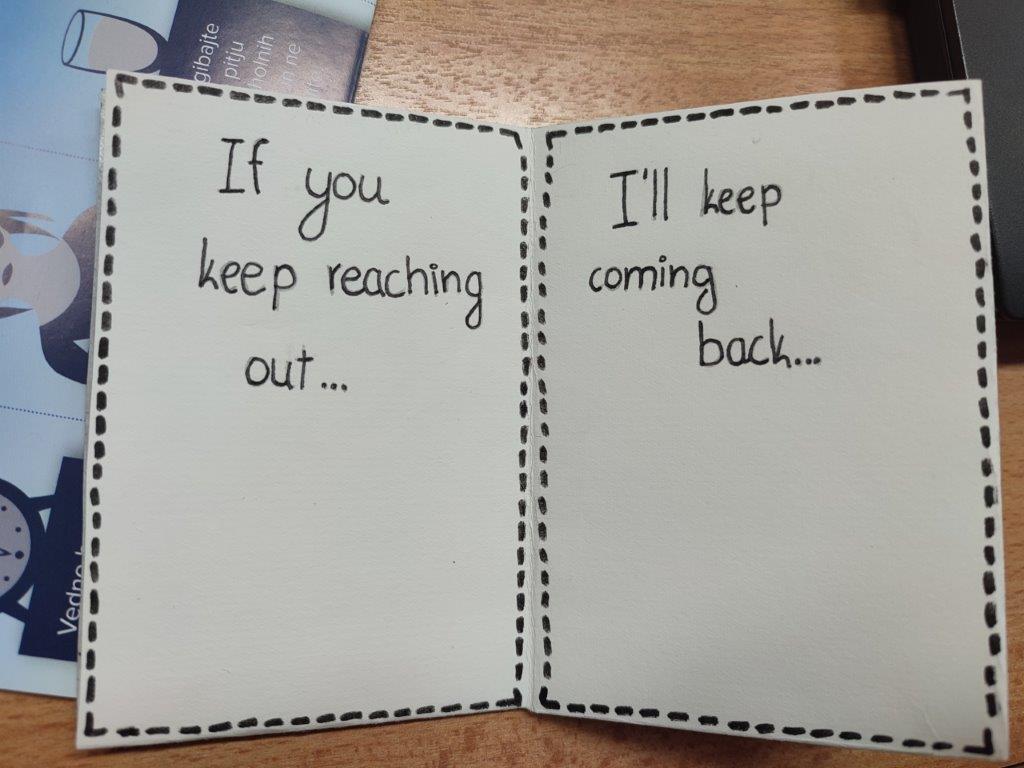 If you
keep reaching
out...
I'll keep
coming
back...
gibajte
pitju
holnih
n ne
Vedno